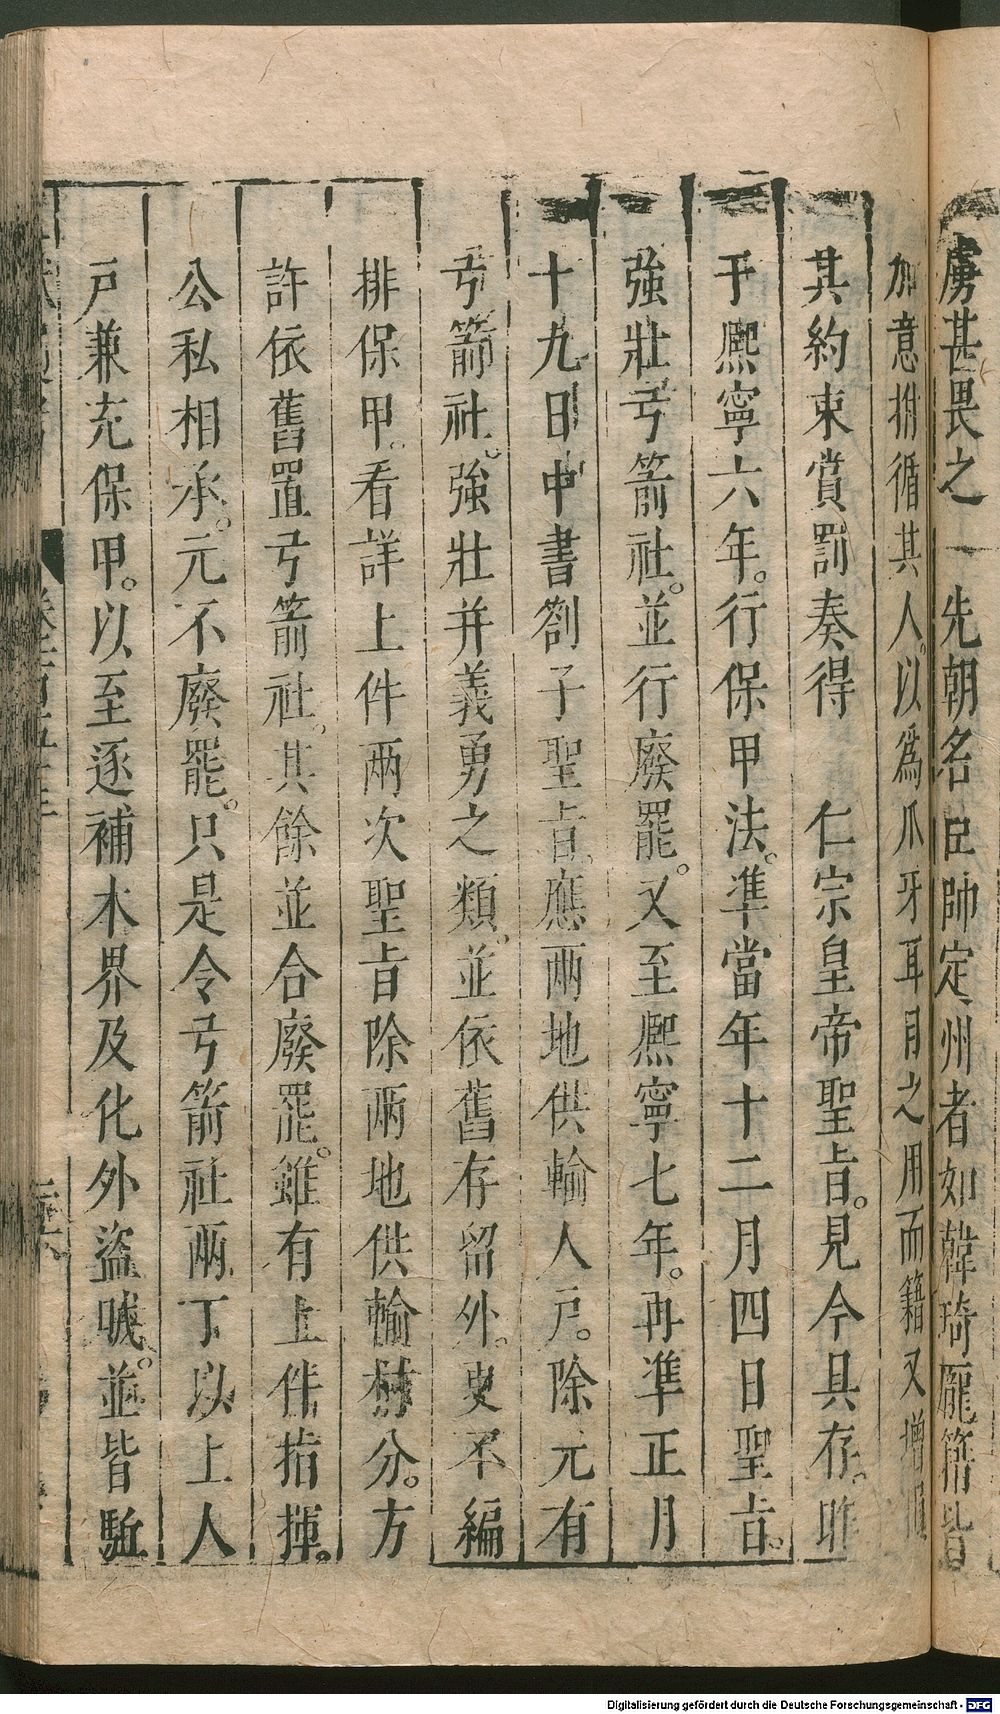 虜甚畏之 先朝名臣帥定州者如韓琦龐籍皆
加意拊循其人以為爪牙耳目之用而籍又增損
其約束賞罰奏得 仁宗皇帝聖旨見今具存昨
于熙寧六年行保甲法準當年十二月四日聖旨
強壯弓箭社並行廢罷又至熙寧七年再準正月
十九日中書劄子聖旨應兩地供輸人戶除元有
弓箭社強壯并義勇之類並依舊存留外更不編
排保甲看詳上件兩次聖旨除兩地供輸村分方
許依舊置弓箭社其餘並合廢罷雖有上件指揮
公私相承元不廢罷只是令弓箭社兩丁以上人
戶兼充保甲以至逐補本界及化外盜賊並皆駈
Digitalisierung gefördert durch die Deutsche Forschungsgemeinschaft - DFG